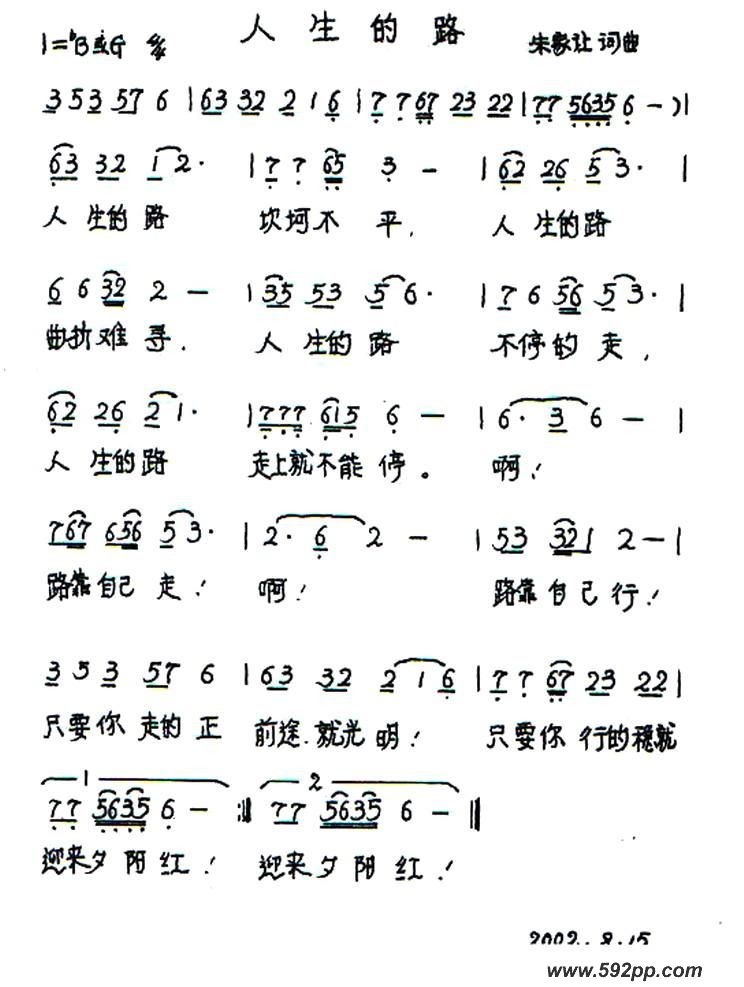 人生的路
1=♭B或G
朱家让 词曲
3 5 3 5 7 6 | 6 3 3 2 2 1 6 | 7 7 6 7 2 3 2 2 | 7 7 5 6 3 5 6 - ) |
6 3 3 2 1 2 · | 7 7 6 5 3 - | 6 2 2 6 5 3 · |
人生的路 坎坷不平, 人生的路
6 6 3 2 2 - | 3 5 5 3 5 6 · | 7 6 5 6 5 3 · |
曲折难寻. 人生的路 不停的走,
6 2 2 6 2 1 · | 7 7 7 6 1 5 6 - | 6 · 3 6 - |
人生的路 走上就不能停。 啊!
7 6 7 6 5 6 5 3 · | 2 · 6 2 - | 5 3 3 2 1 2 - |
路靠自己走! 啊! 路靠自己行!
3 5 3 5 7 6 | 6 3 3 2 2 1 6 | 7 7 6 7 2 3 2 2 |
只要你走的正 前途.就光明! 只要你行的稳就
1 2
7 7 5 6 3 5 6 - :‖ 7 7 5 6 3 5 6 - ‖
迎来夕阳红! 迎来夕阳红!
2002.8.15
www.592pp.com